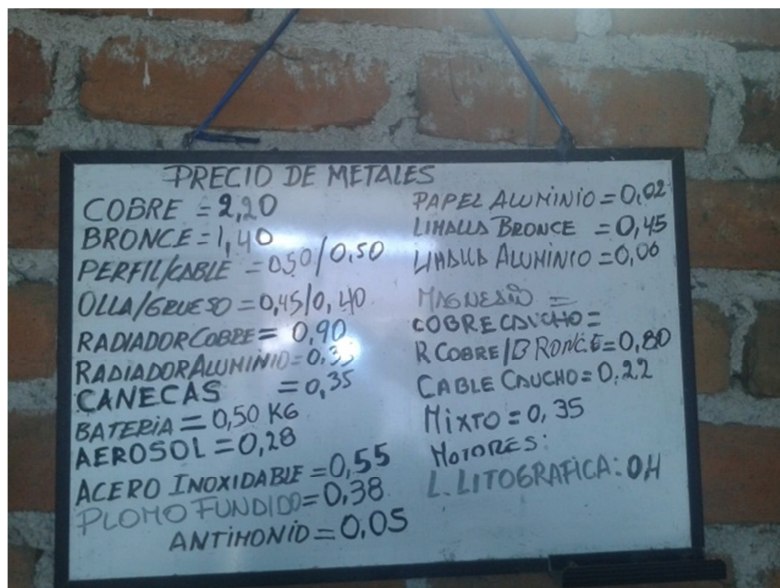 PRECIO DE METALES
COBRE = 2,20
BRONCE = 1,40
PERFIL/CABLE = 0,50/0,50
OLLA/GRUESO = 0,45/0,40
RADIADOR COBRE = 0,90
RADIADOR ALUMINIO = 0,35
CANECAS = 0,35
BATERIA = 0,50 KG
AEROSOL = 0,28
ACERO INOXIDABLE = 0,55
PLOMO FUNDIDO = 0,38
ANTIMONIO = 0,05
PAPEL ALUMINIO = 0,02
LIMALLA BRONCE = 0,45
LIMALLA ALUMINIO = 0,06
MAGNESIO =
COBRE CAUCHO =
R COBRE/BRONCE = 0,80
CABLE CAUCHO = 0,22
MIXTO = 0,35
MOTORES:
L. LITOGRAFICA: